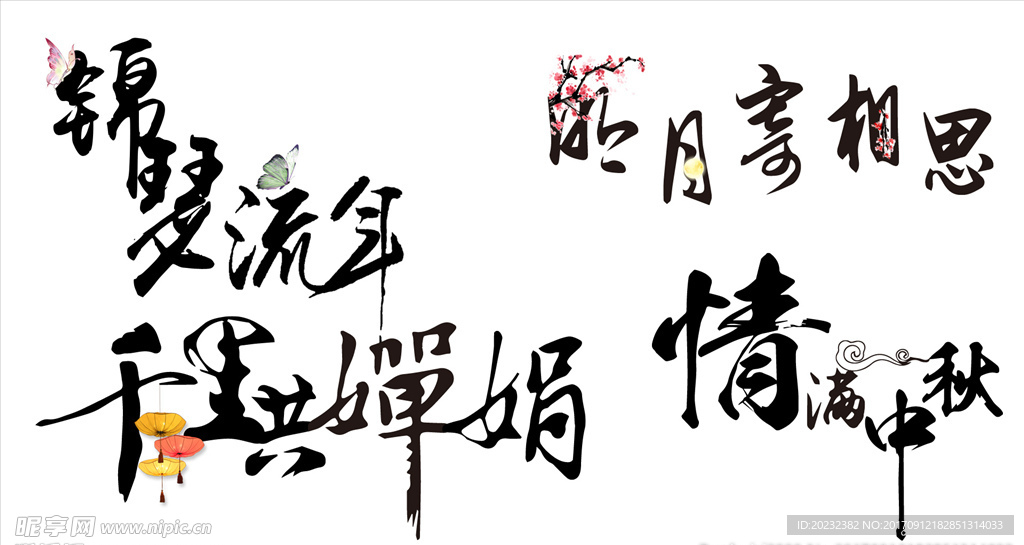 锦瑟流年
明月寄相思
千里共婵娟
情满中秋
昵享网 www.nipic.cn
ID:20232382 NO:20170912182851314033